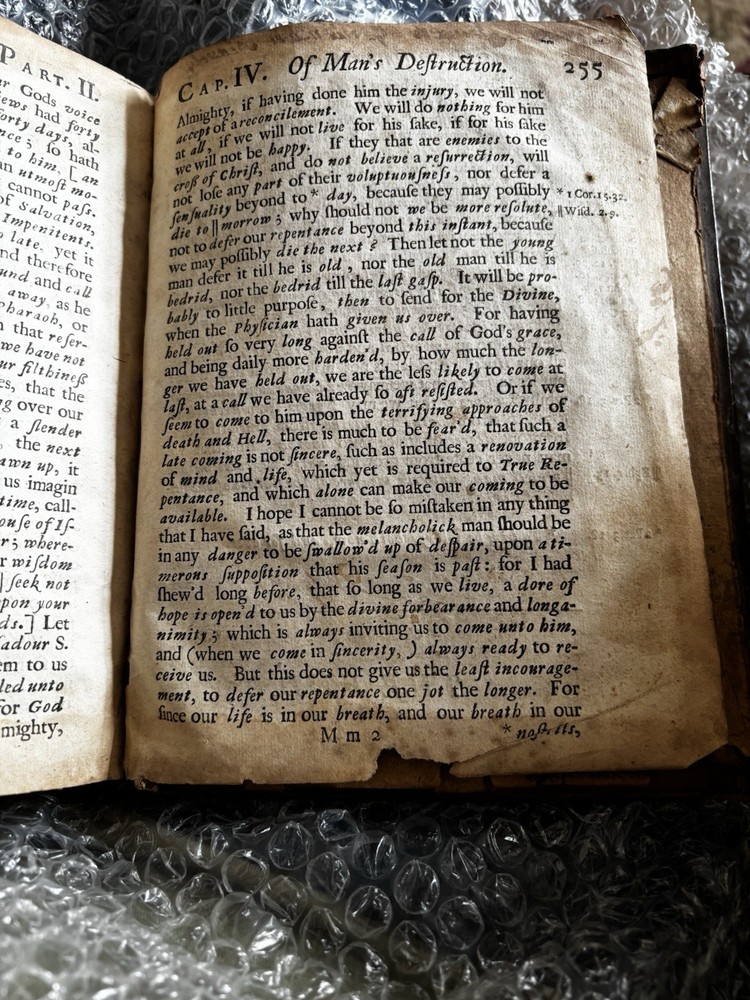 PART. II.
Gods voice
ews had forty
forty days, al-
nce; so hath
to him, [an
an utmost mo-
cannot pass.
of Salvation,
Impenitents.
late, yet it
nd therefore
und and call
away, as he
Pharaoh, or
n that refer-
we have not
ur filthineſs
es, that the
ng over our
a ſlender
, the next
awn up, it
us imagin
time, call-
ouſe of Iſ-
r; where-
r wiſdom
] ſeek not
pon your
ds.] Let
ſadour S.
em to us
led unto
for God
mighty,
CAP. IV. Of Man's Deſtruction. 255
Almighty, if having done him the injury, we will not
accept of a reconcilement. We will do nothing for him
at all, if we will not live for his ſake, if for his ſake
we will not be happy. If they that are enemies to the
croſs of Chriſt, and do not believe a reſurrection, will
not loſe any part of their voluptuouſneſs, nor defer a
ſenſuality beyond to * day, becauſe they may poſſibly
die to || morrow; why ſhould not we be more reſolute,
not to defer our repentance beyond this inſtant, becauſe
we may poſſibly die the next? Then let not the young
man defer it till he is old, nor the old man till he is
bedrid, nor the bedrid till the laſt gaſp. It will be pro-
bably to little purpoſe, then to ſend for the Divine,
when the Phyſician hath given us over. For having
held out ſo very long againſt the call of God's grace,
and being daily more harden'd, by how much the lon-
ger we have held out, we are the leſs likely to come at
laſt, at a call we have already ſo oft reſiſted. Or if we
ſeem to come to him upon the terrifying approaches of
death and Hell, there is much to be fear'd, that ſuch a
late coming is not ſincere, ſuch as includes a renovation
of mind and life, which yet is required to True Re-
pentance, and which alone can make our coming to be
available. I hope I cannot be ſo miſtaken in any thing
that I have ſaid, as that the melancholick man ſhould be
in any danger to be ſwallow'd up of deſpair, upon a ti-
merous ſuppoſition that his ſeaſon is paſt: for I had
ſhew'd long before, that ſo long as we live, a dore of
hope is open'd to us by the divine forbearance and longa-
nimity; which is always inviting us to come unto him,
and (when we come in ſincerity,) always ready to re-
ceive us. But this does not give us the leaſt incourage-
ment, to defer our repentance one jot the longer. For
ſince our life is in our breath, and our breath in our
Mm 2 * noſtrils,
* 1 Cor. 15. 32.
|| Wiſd. 2. 9.